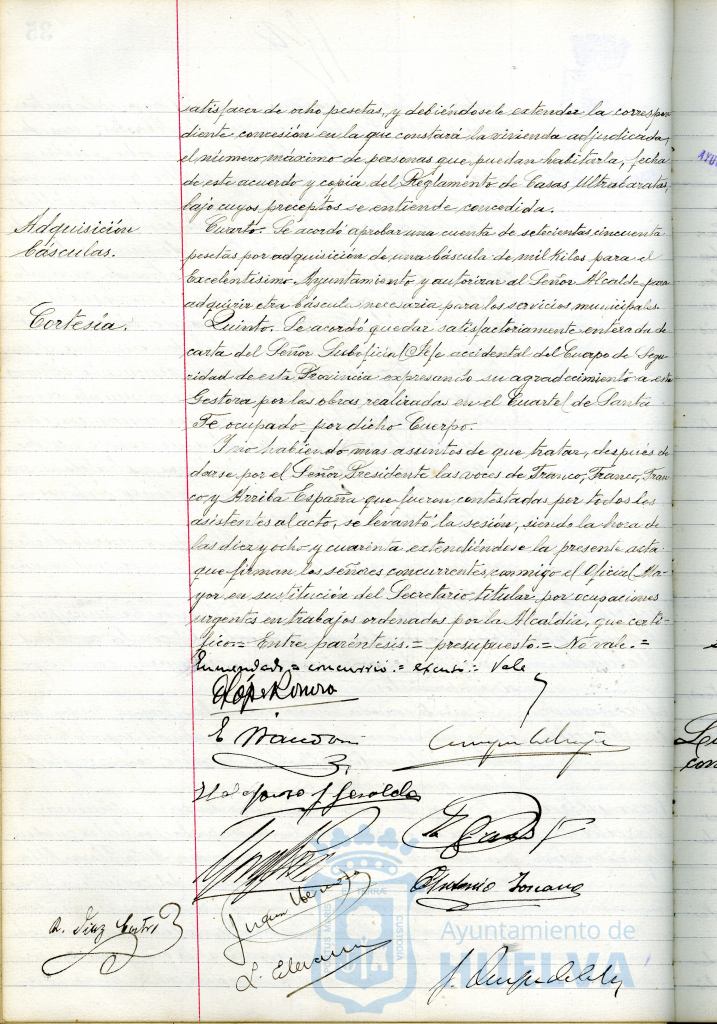 satisfacer de ocho pesetas, y debiéndosele extender la correspon-
diente concesión en la que constará la vivienda adjudicada,
el número máximo de personas que puedan habitarla, fecha
de este acuerdo y copia del Reglamento de Casas Ultrabaratas,
bajo cuyos preceptos se entiende concedida.
Adquisición
básculas.
Cuarto. Se acordó aprobar una cuenta de setecientas cincuenta
pesetas por adquisición de una báscula de mil kilos para el
Excelentísimo Ayuntamiento y autorizar al Señor Alcalde para
adquirir otra báscula necesaria para los servicios municipales.
Cortesía.
Quinto. Se acordó quedar satisfactoriamente enterada de
carta del Señor Suboficial Jefe accidental del Cuerpo de Segu-
ridad de esta Provincia expresando su agradecimiento a esta
Gestora por las obras realizadas en el Cuartel de Santa
Fe ocupado por dicho Cuerpo.
Y no habiendo mas asuntos de que tratar, después de
darse por el Señor Presidente las voces de Franco, Franco, Fran-
co y Arriba España que fueron contestadas por todos los
asistentes al acto, se levantó la sesión, siendo la hora de
las diez y ocho y cuarenta extendiéndose la presente acta
que firman los señores concurrentes, conmigo el Oficial Ma-
yor en sustitución del Secretario titular por ocupaciones
urgentes en trabajos ordenados por la Alcaldía, que certi-
fico.= Entre paréntesis.= presupuesto.= No vale.=
Enmendado = concurrió = excusó = Vale
López Romero
E
Antonio Toscano
R. Díaz
Juan
L.
J.
Ayuntamiento de
HUELVA